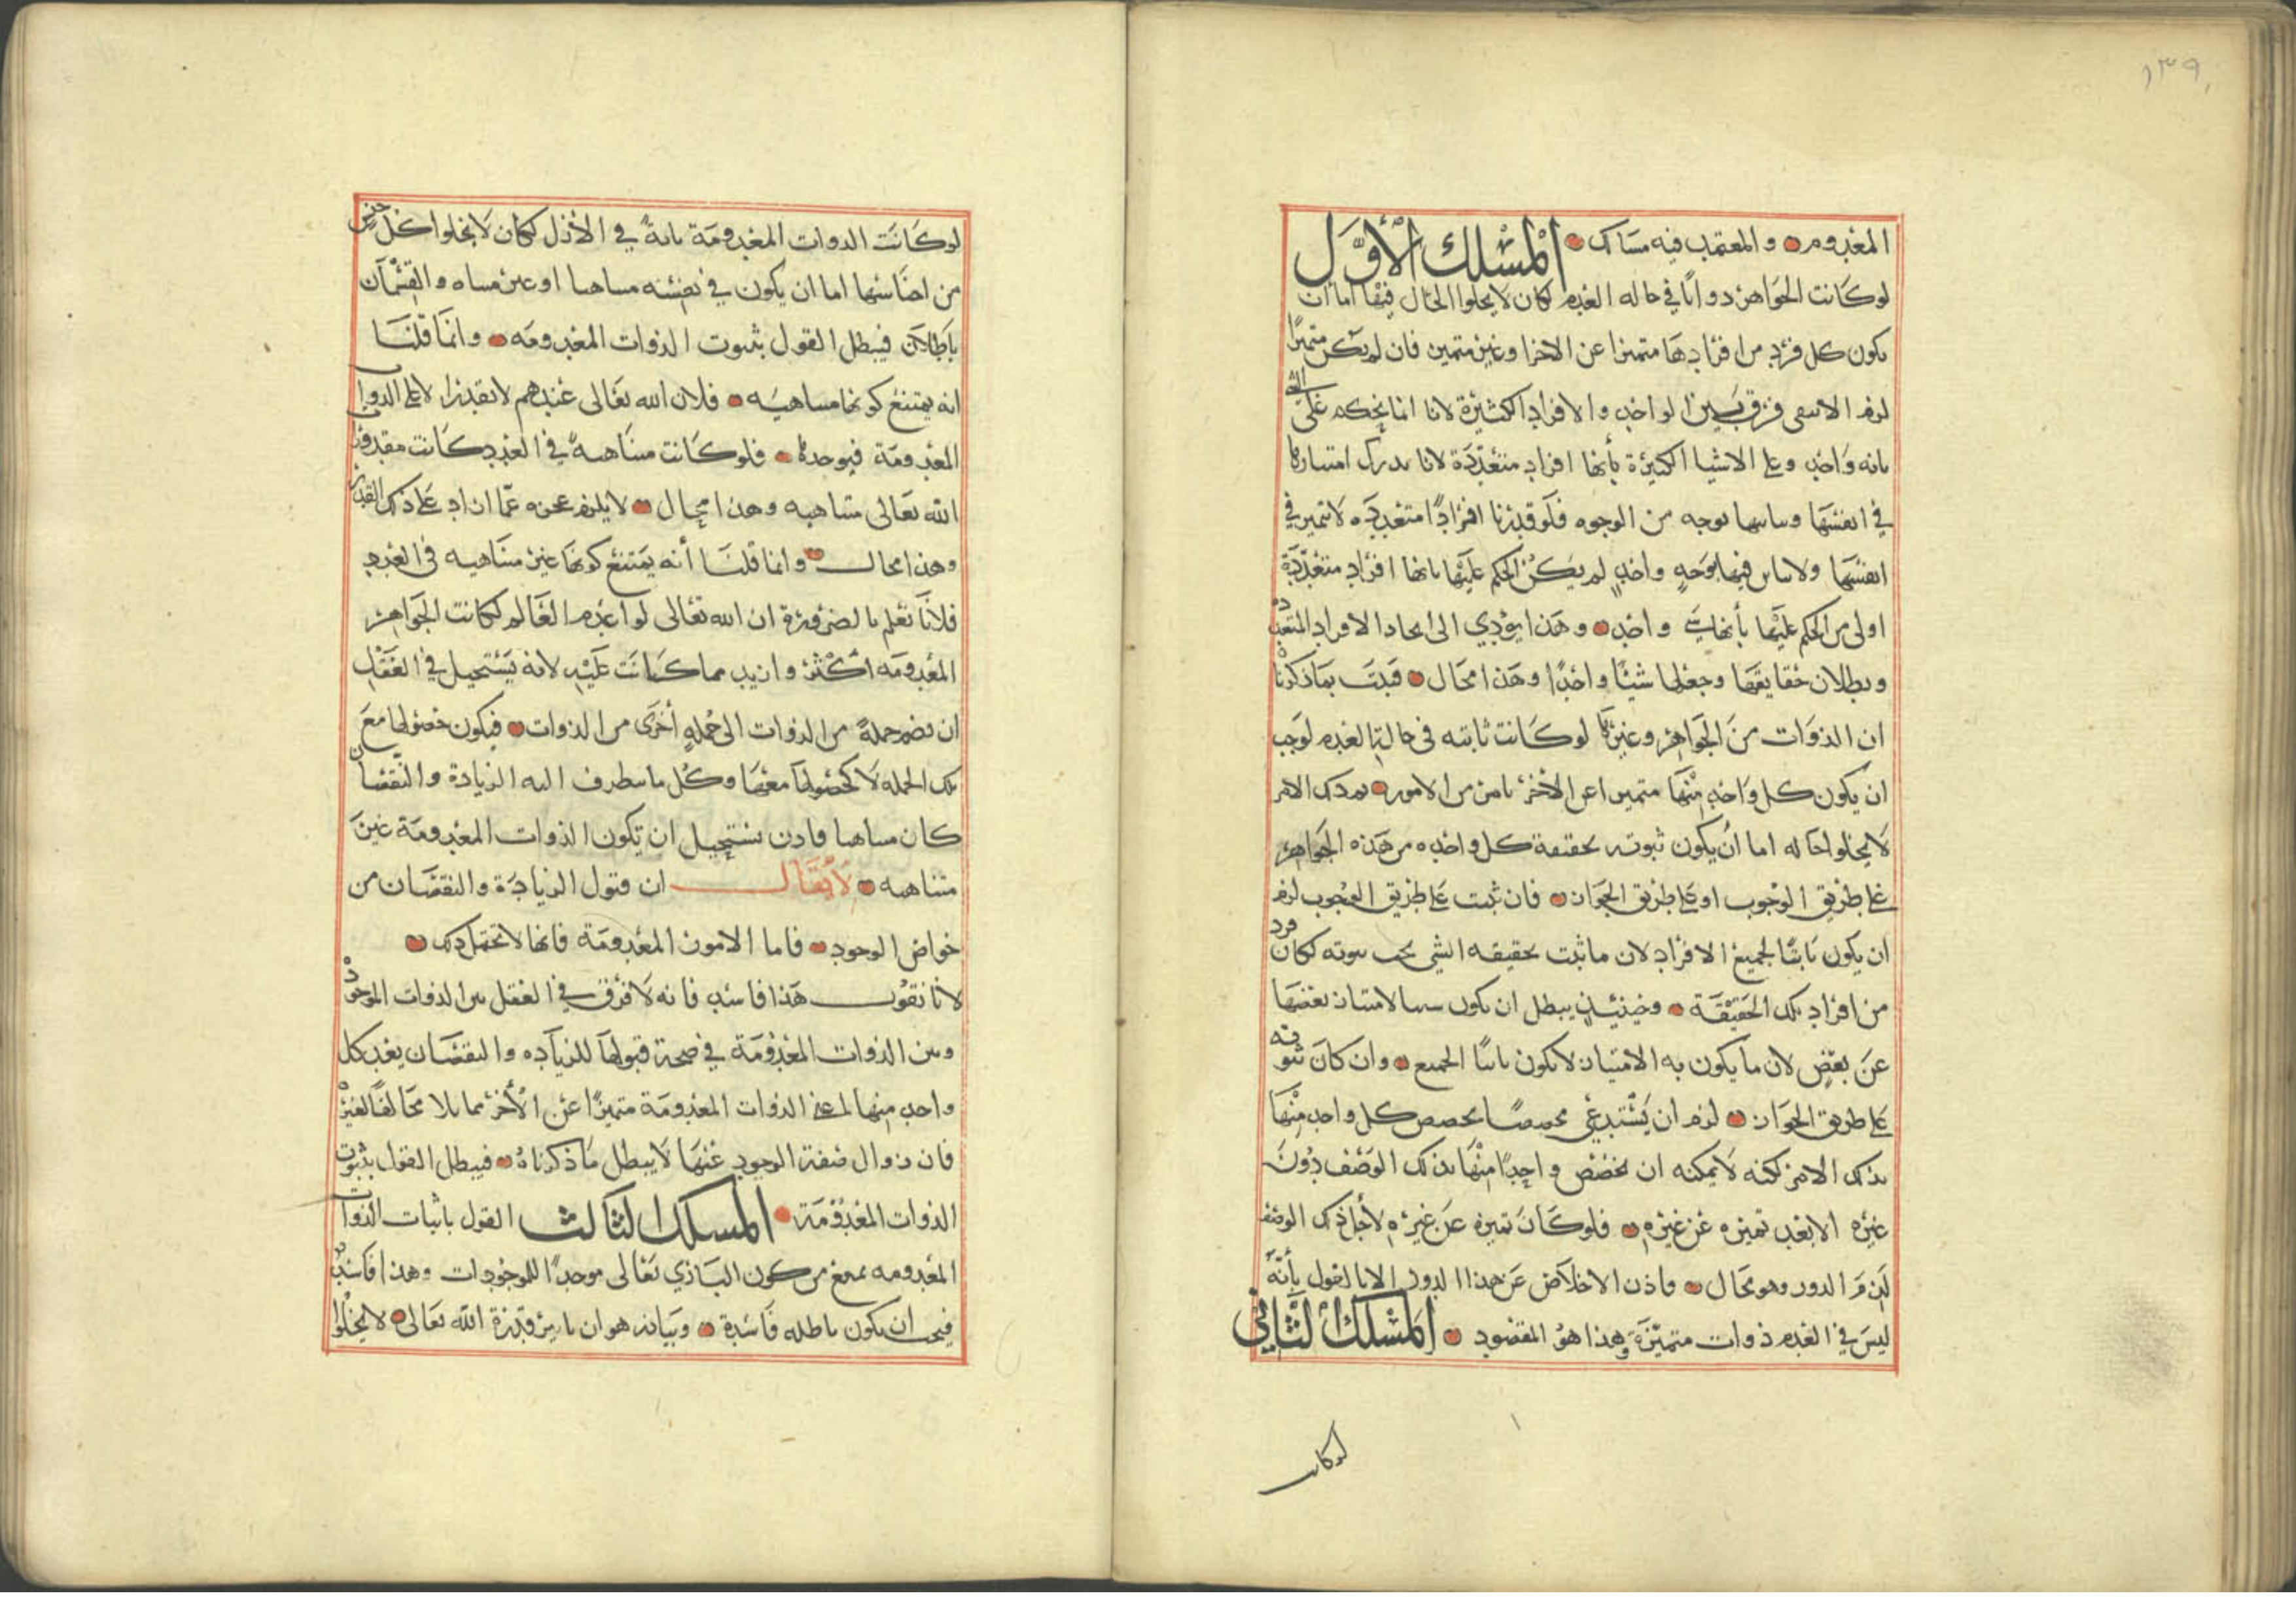 ١٣٩
المعدوم والمعتمد فيه مسالك المسلك الأول
لو كانت الجواهر ذواتا في حاله العدم لكان لا يخلوا الحال فيها اما ان
يكون كل فرد من افرادها متميزا عن الاخر او غير متميز فان لم يكن متميزا
لزم الا يبقى فرق بين الواحد والافراد الكثيرة لانا انما نحكم على الشي
بانه واحد وعلى الاشيا الكثيرة بأنها افراد متعددة لانا ندرك امتيازها
في انفسها وتباينها بوجه من الوجوه فلو قدرنا افرادا متعدده لا تميز في
انفسها ولا تباين فيها بوجه واحد لم يكن الحكم عليها بانها افراد متعددة
اولى من الحكم عليها بأنها شي واحد وهذا يؤدي الى اتحاد الافراد المتعدده
وبطلان حقايقها وجعلها شيئا واحدا وهذا محال فثبت بما ذكرنا
ان الذوات من الجواهر وغيرها لو كانت ثابته في حالة العدم لوجب
ان يكون كل واحد منها متميزا عن الاخر بامر من الامور فذلك الامر
لا يخلوا حاله اما أن يكون ثبوته لحقيقة كل واحده من هذه الجواهر
على طريق الوجوب او على طريق الجواز فان ثبت على طريق الوجوب لزم
ان يكون ثابتا لجميع الافراد لان ما ثبت لحقيقه الشي يجب ثبوته لكل فرد
من افراد تلك الحقيقة وحينئذ يبطل ان يكون سببا لامتياز بعضها
عن بعض لان ما يكون به الامتياز لا يكون ثابتا للجميع وان كان ثبوته
على طريق الجواز لزم ان يستدعي مخصصا يخصص كل واحد منها
بذلك الامر لكنه لا يمكنه ان يخصص واحدا منها بذلك الوصف دون
غيره الا بعد تميزه عن غيره فلو كان تميزه عن غيره لأجل ذلك الوصف
لزم الدور وهو محال فاذن لا خلاص عن هذا الدور الا بالقول بأنه
ليس في العدم ذوات متميزة وهذا هو المقصود المسلك الثاني
لو كانت
لو كانت الذوات المعدومة ثابتة في الازل لكان لا يخلوا كل جنس
من اجناسها اما ان يكون في نفسه متناهيا او غير متناه والقسمان
باطلان فيبطل القول بثبوت الذوات المعدومه وانما قلنا
انه يمتنع كونها متناهيه فلان الله تعالى عندهم لا تقدر الا على الذوات
المعدومة فيوجدها فلو كانت متناهية في العدد كانت مقدورات
الله تعالى متناهيه وهذا محال لا يلزم عجزه عما ازاد على ذلك القدر
وهذا محال وانما قلنا أنه يمتنع كونها غير متناهيه في العدد
فلانا نعلم بالضرورة ان الله تعالى لو اعدم العالم لكانت الجواهر
المعدومه اكثر وازيد مما كانت عليه لانه يستحيل في العقل
ان نضم جملة من الذوات الى جملة أخرى من الذوات فيكون حصولها مع
تلك الجمله لا كحصولها معها وكل ما يتطرف اليه الزيادة والنقصان
كان متناهيا فاذن يستحيل ان تكون الذوات المعدومة غير
متناهيه لا يقال ان قبول الزيادة والنقصان من
خواص الوجود فاما الامور المعدومة فانها لا تحتمل ذلك
لانا نقول هذا فاسد فانه لا فرق في العقل بين الذوات الموجوده
وبين الذوات المعدومة في صحة قبولها للزياده والنقصان بعد كل
واحد منها لمعنى الذوات المعدومة متميزا عن الأخر مماثلا مخالفا لغيره
فان زوال صفة الوجود عنها لا يبطل ما ذكرناه فيبطل القول بثبوت
الذوات المعدومة المسلك الثالث القول باثبات الذوات
المعدومه يمنع من كون الباري تعالى موجدا للموجودات وهذا فاسد
فيجب ان يكون باطله فاسدة وبيانه هو ان تاثير قدرة الله تعالى لا يخلوا